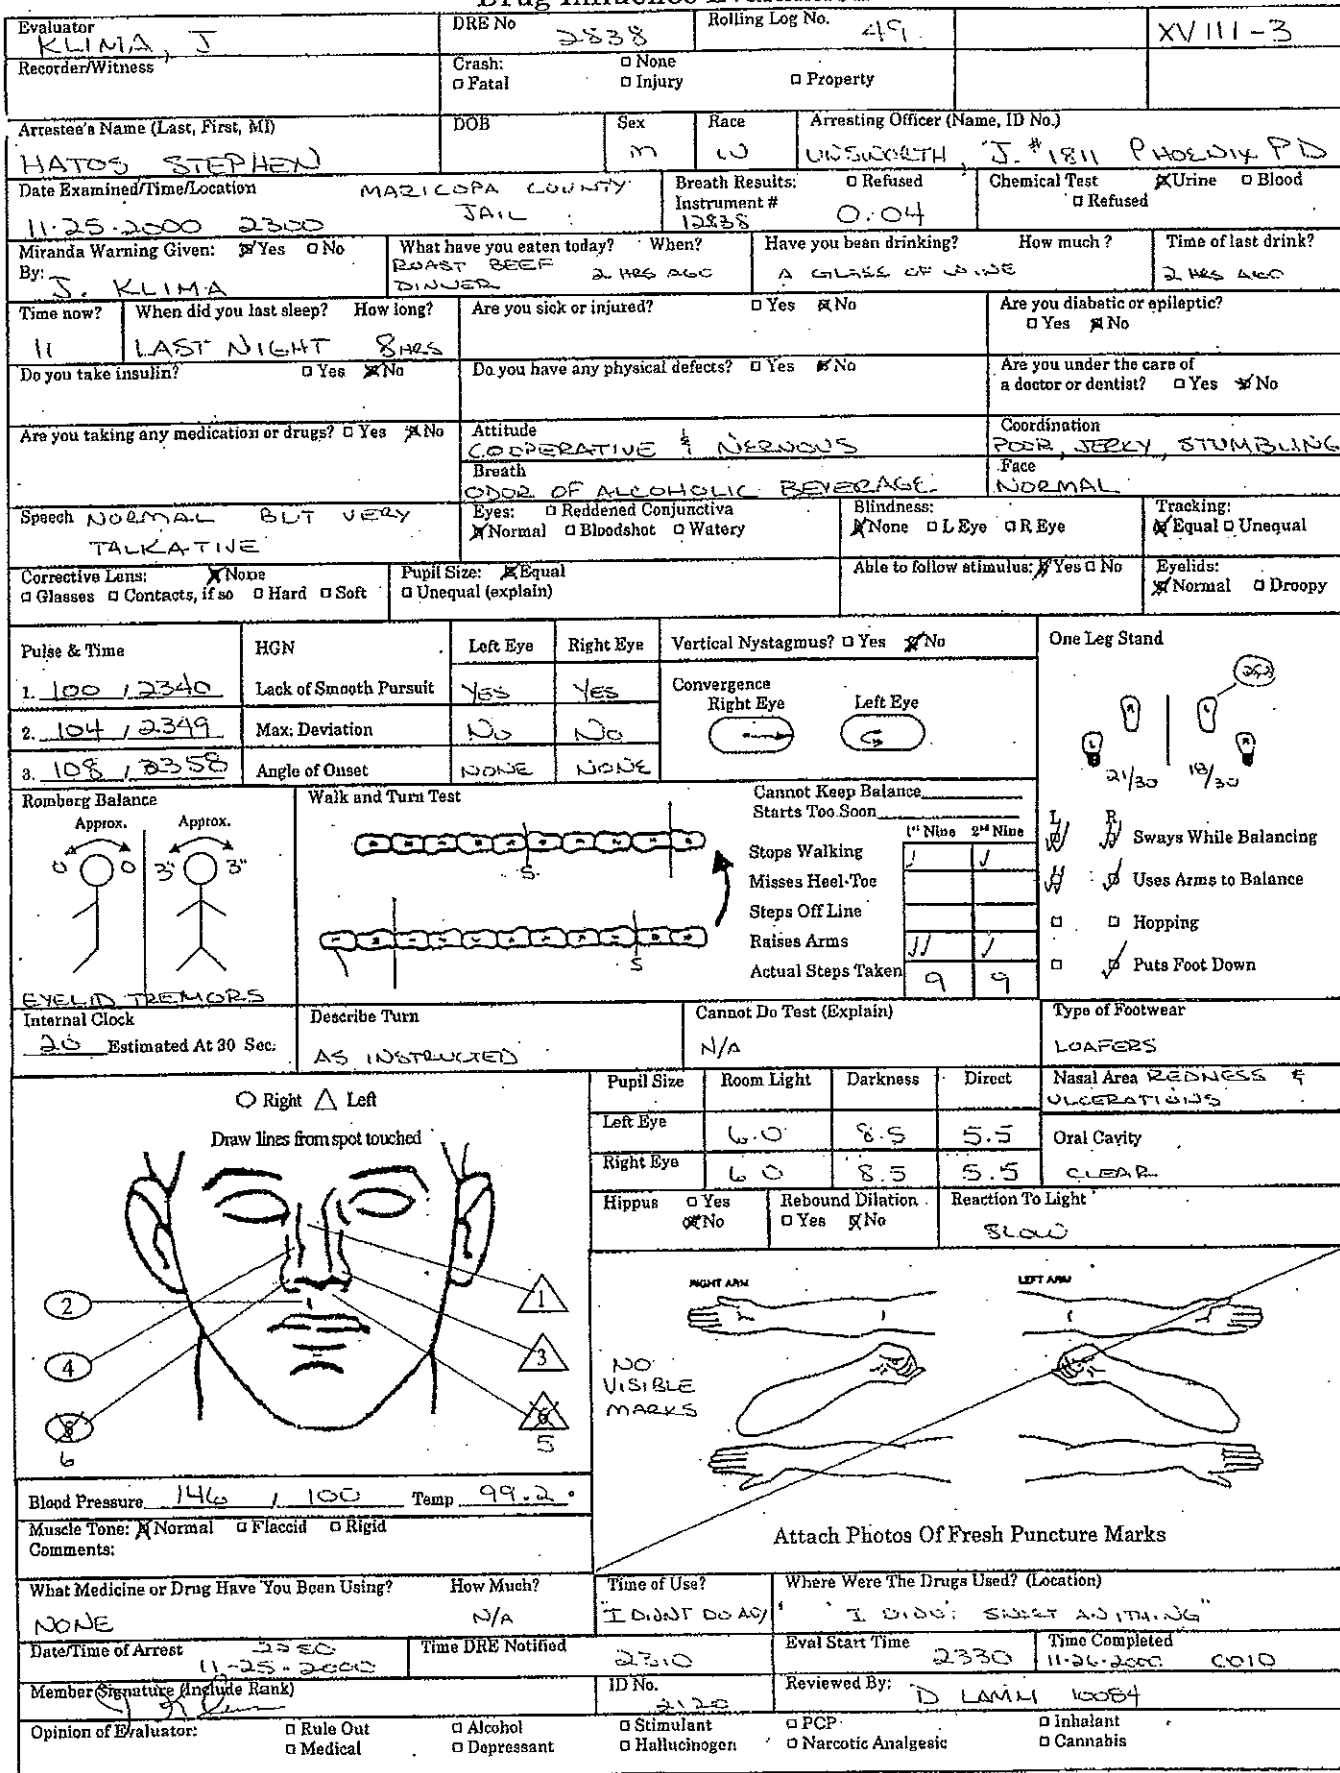 Evaluator
KLIMA, J
DRE No
2838
Rolling Log No.
49
XVIII-3
Recorder/Witness
Crash: □ None
□ Fatal □ Injury □ Property
Arrestee's Name (Last, First, MI)
HATOS STEPHEN
DOB
Sex
M
Race
W
Arresting Officer (Name, ID No.)
UNSWORTH, J. #1811 PHOENIX PD
Date Examined/Time/Location
MARICOPA COUNTY
JAIL
11-25-2000 2300
Breath Results: □ Refused
Instrument #
12838 0.04
Chemical Test ☒ Urine □ Blood
□ Refused
Miranda Warning Given: ☒ Yes □ No
By: J. KLIMA
What have you eaten today? When?
ROAST BEEF
DINNER 2 HRS AGO
Have you been drinking? How much?
A GLASS OF WINE
Time of last drink?
2 HRS AGO
Time now?
11
When did you last sleep? How long?
LAST NIGHT 8 HRS
Are you sick or injured? □ Yes ☒ No
Are you diabetic or epileptic?
□ Yes ☒ No
Do you take insulin? □ Yes ☒ No
Do you have any physical defects? □ Yes ☒ No
Are you under the care of
a doctor or dentist? □ Yes ☒ No
Are you taking any medication or drugs? □ Yes ☒ No
Attitude
COOPERATIVE & NERVOUS
Coordination
POOR, JERKY, STUMBLING
Breath
ODOR OF ALCOHOLIC BEVERAGE
Face
NORMAL
Speech NORMAL BUT VERY
TALKATIVE
Eyes: □ Reddened Conjunctiva
☒ Normal □ Bloodshot □ Watery
Blindness:
☒ None □ L Eye □ R Eye
Tracking:
☒ Equal □ Unequal
Corrective Lens: ☒ None
□ Glasses □ Contacts, if so □ Hard □ Soft
Pupil Size: ☒ Equal
□ Unequal (explain)
Able to follow stimulus: ☒ Yes □ No
Eyelids:
☒ Normal □ Droopy
Pulse & Time
1. 100 / 2340
2. 104 / 2349
3. 108 / 2358
HGN Left Eye Right Eye
Lack of Smooth Pursuit YES YES
Max. Deviation No No
Angle of Onset NONE NONE
Vertical Nystagmus? □ Yes ☒ No
Convergence
Right Eye Left Eye
One Leg Stand
L R
21/30 18/30
L R
Sways While Balancing
Uses Arms to Balance
□ □ Hopping
□ Puts Foot Down
Romberg Balance
Approx. Approx.
0 0 3" 3"
EYELID TREMORS
Walk and Turn Test
S
S
Cannot Keep Balance
Starts Too Soon
1st Nine 2nd Nine
Stops Walking ✓ ✓
Misses Heel-Toe
Steps Off Line
Raises Arms ✓✓ ✓
Actual Steps Taken 9 9
Internal Clock
20 Estimated At 30 Sec.
Describe Turn
AS INSTRUCTED
Cannot Do Test (Explain)
N/A
Type of Footwear
LOAFERS
○ Right △ Left
Draw lines from spot touched
1
2
3
4
5
6
6
5
Pupil Size Room Light Darkness Direct
Left Eye 6.0 8.5 5.5
Right Eye 6.0 8.5 5.5
Nasal Area REDNESS &
ULCERATIONS
Oral Cavity
CLEAR
Hippus □ Yes
☒ No
Rebound Dilation
□ Yes ☒ No
Reaction To Light
SLOW
RIGHT ARM LEFT ARM
NO
VISIBLE
MARKS
Attach Photos Of Fresh Puncture Marks
Blood Pressure 146 / 100 Temp 99.2°
Muscle Tone: ☒ Normal □ Flaccid □ Rigid
Comments:
What Medicine or Drug Have You Been Using? How Much?
NONE N/A
Time of Use?
"I DIDNT DO ANY
Where Were The Drugs Used? (Location)
"I DIDN'T ANYTHING"
Date/Time of Arrest
11-25-2000
Time DRE Notified
2310
Eval Start Time
2330
Time Completed
11-26-2000 0010
Member Signature (Include Rank)
ID No.
2120
Reviewed By: D LAMM 10084
Opinion of Evaluator: □ Rule Out □ Alcohol □ Stimulant □ PCP □ Inhalant
□ Medical □ Depressant □ Hallucinogen □ Narcotic Analgesic □ Cannabis